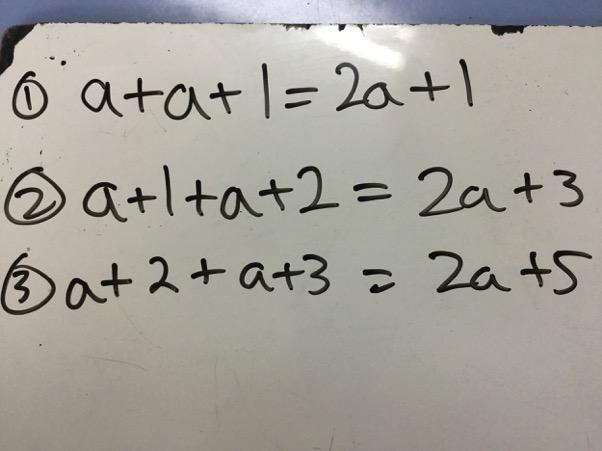 ① a+a+1=2a+1
② a+1+a+2=2a+3
③ a+2+a+3=2a+5